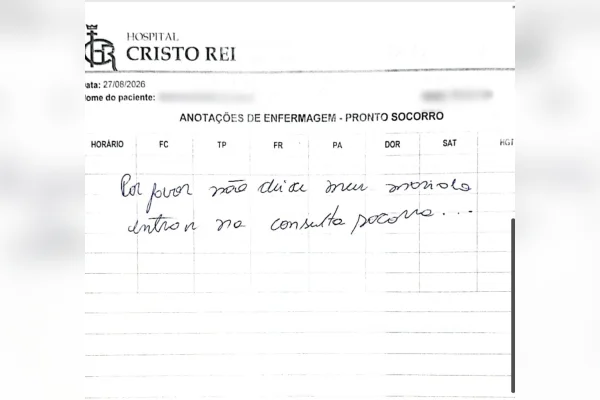 HOSPITAL
CRISTO REI
ata: 27/08/2026
ome do paciente:
ANOTAÇÕES DE ENFERMAGEM - PRONTO SOCORRO
HORÁRIO FC TP FR PA DOR SAT HGT
Por favor não deixe meu marido
entrar na consulta socorro...